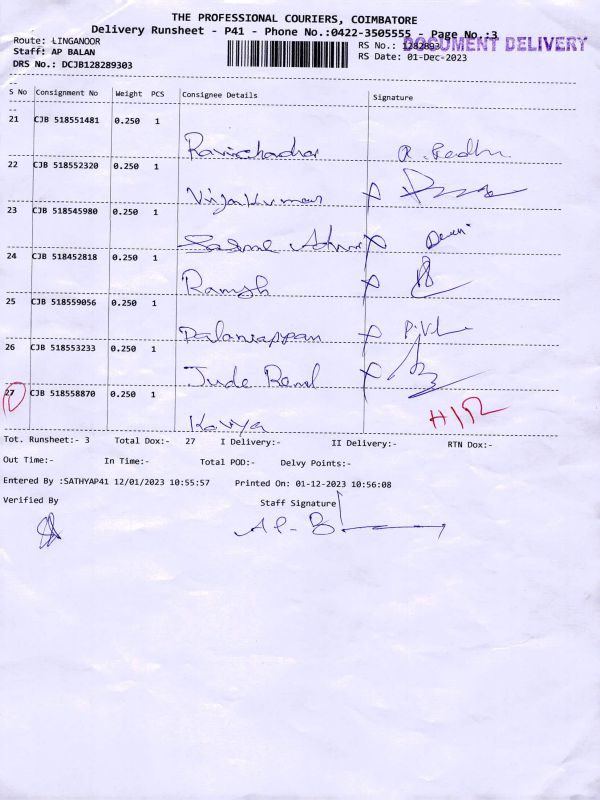 THE PROFESSIONAL COURIERS, COIMBATORE
Delivery Runsheet - P41 - Phone No.:0422-3505555 - Page No.:3
Route: LINGANOOR
RS No.: 1282893
DOCUMENT DELIVERY
Staff: AP BALAN
RS Date: 01-Dec-2023
DRS No.: DCJB128289303
S No Consignment No Weight PCS Consignee Details Signature
21 CJB 518551481 0.250 1
Ravichandran
22 CJB 518552320 0.250 1
Vijakumar
23 CJB 518545980 0.250 1
24 CJB 518452818 0.250 1
Ramesh
25 CJB 518559056 0.250 1
Palaniappan
26 CJB 518553233 0.250 1
Jude
27 CJB 518558870 0.250 1
Kavya
Tot. Runsheet:- 3 Total Dox:- 27 I Delivery:- II Delivery:- RTN Dox:-
Out Time:- In Time:- Total POD:- Delvy Points:-
Entered By :SATHYAP41 12/01/2023 10:55:57 Printed On: 01-12-2023 10:56:08
Verified By Staff Signature